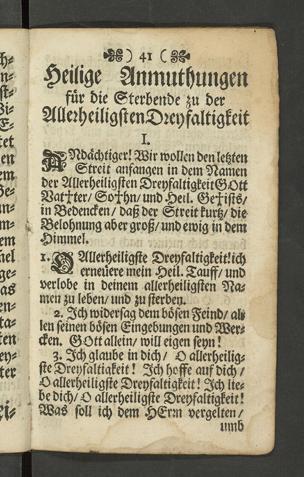 ) 41 (
Heilige Anmuthungen
für die Sterbende zu der
Allerheiligsten Dreyfaltigkeit
I.
ANdächtiger! Wir wollen den letzten
Streit anfangen in dem Namen
der Allerheiligsten Dreyfaltigkeit GOtt
Vat†ter/ So†hn/ und Heil. Ge†ists/
in Bedencken/ daß der Streit kurtz/ die
Belohnung aber groß/ und ewig in dem
Himmel.
1. O Allerheiligste Dreyfaltigkeit! ich
erneuere mein Heil. Tauff/ und
verlobe in deinem allerheiligsten Na-
men zu leben/ und zu sterben.
2. Ich widersag dem bösen Feind/ al-
len seinen bösen Eingebungen und Wer-
cken. GOtt allein/ will eigen seyn!
3. Ich glaube in dich/ O allerheilig-
ste Dreyfaltigkeit! Ich hoffe auf dich/
O allerheiligste Dreyfaltigkeit! Ich lie-
be dich/ O allerheiligste Dreyfaltigkeit!
Was soll ich dem HErrn vergelten/
umb